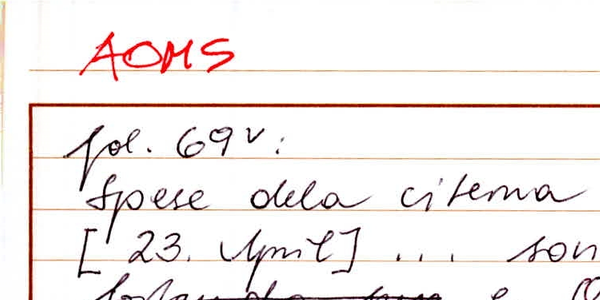 AOMS
fol. 69v:
Spese dela cisterna
[23. April] ... son
e